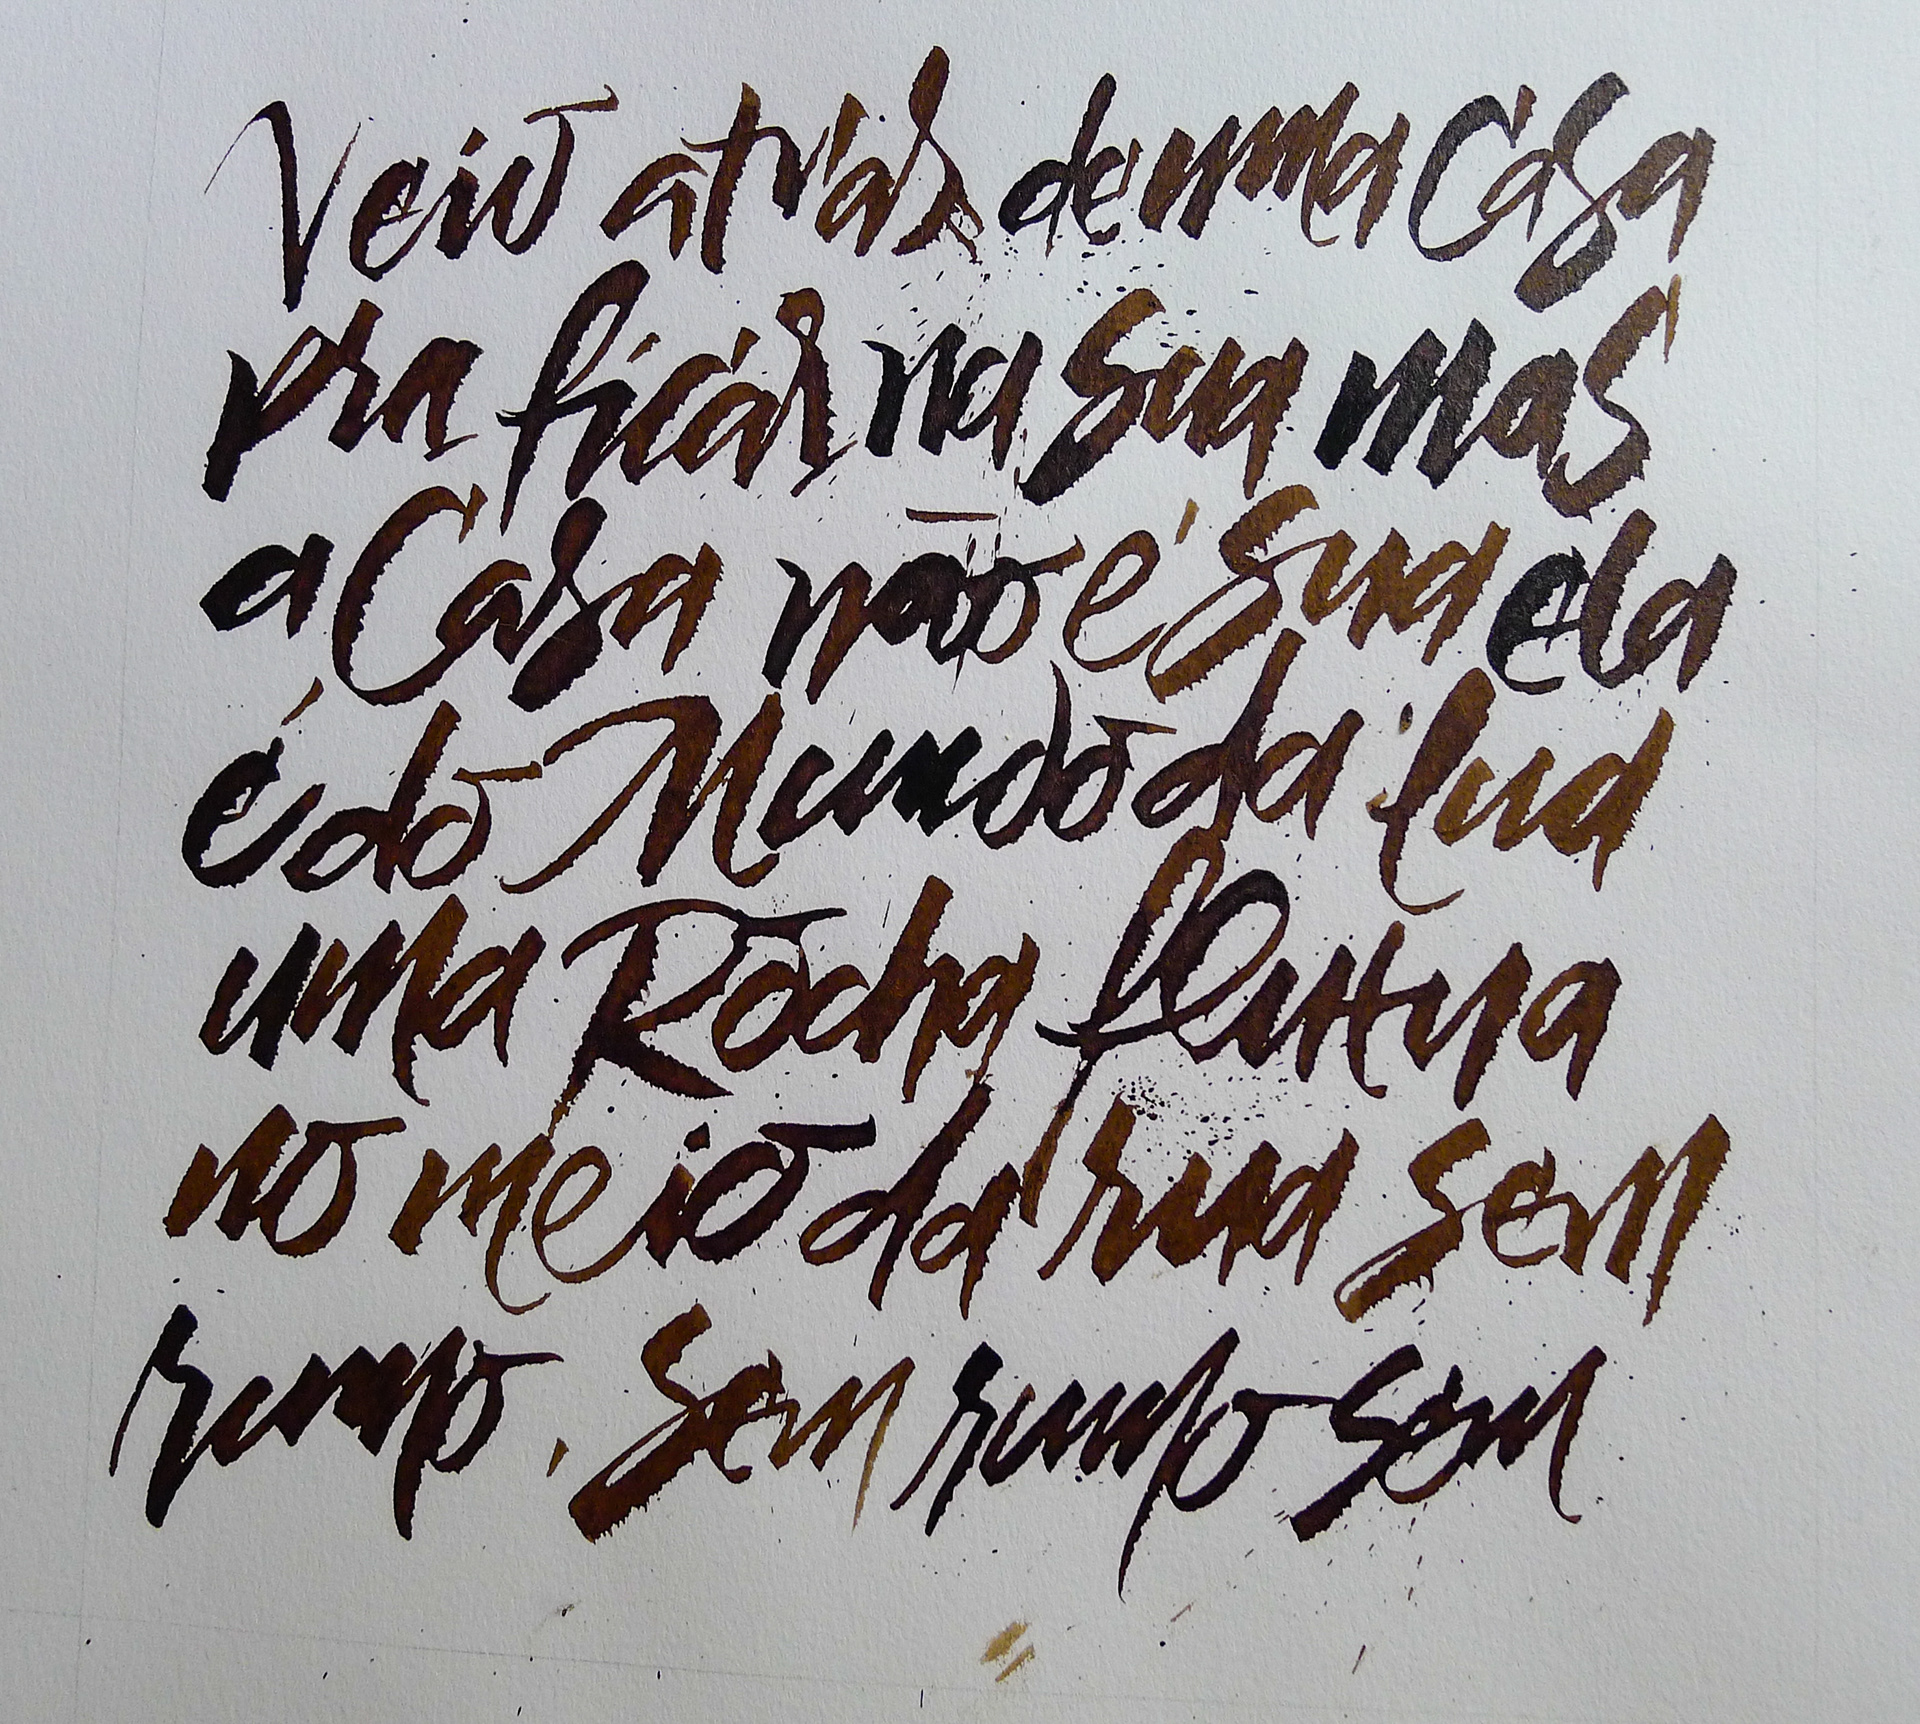 Veio atrás de uma Casa
pra ficar na sua mas
a Casa não é sua ela
é do Mundo da lua
uma Rocha flutua
no meio da rua sem
rumo, Sem rumo sem